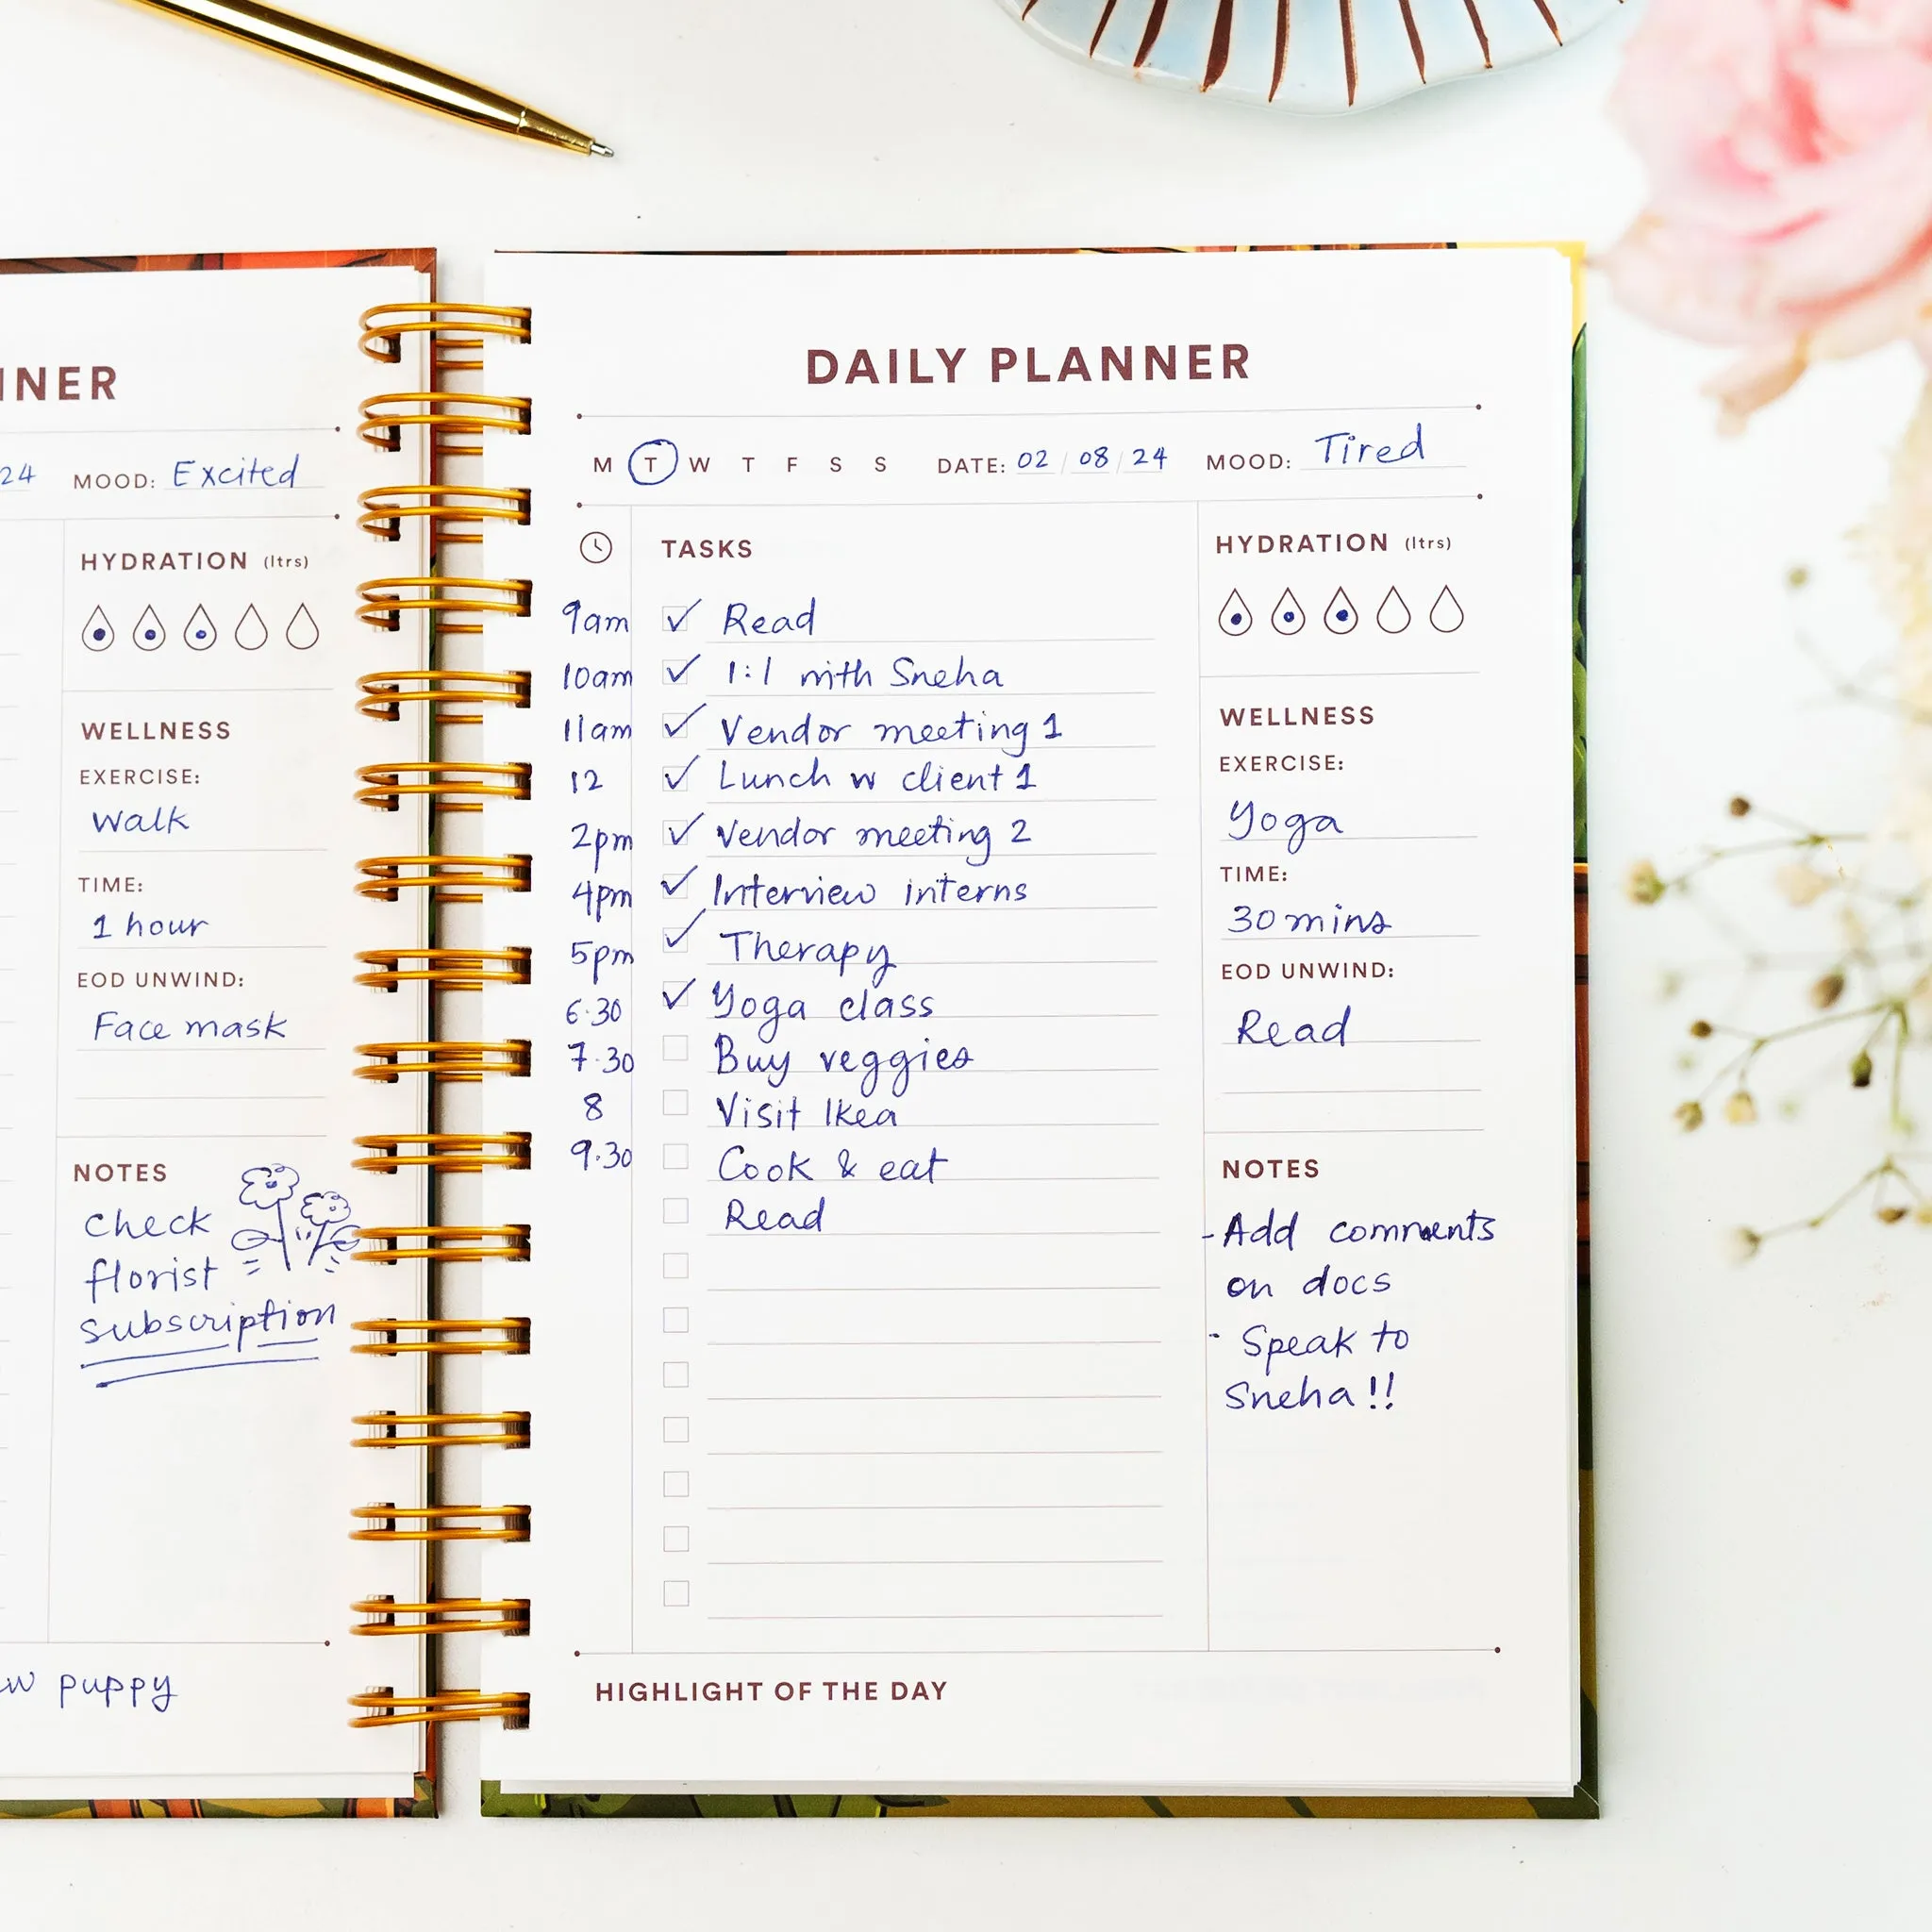 NNER
24 MOOD: Excited
HYDRATION (ltrs)
WELLNESS
EXERCISE:
Walk
TIME:
1 hour
EOD UNWIND:
Face mask
NOTES
Check
florist
subscription
puppy
DAILY PLANNER
M T W T F S S DATE: 02 / 08 / 24 MOOD: Tired
TASKS
9am Read
10am 1:1 with Sneha
11am Vendor meeting 1
12 Lunch w client 1
2pm Vendor meeting 2
4pm Interview interns
5pm Therapy
6.30 Yoga class
7.30 Buy veggies
8 Visit Ikea
9.30 Cook & eat
Read
HYDRATION (ltrs)
WELLNESS
EXERCISE:
Yoga
TIME:
30 mins
EOD UNWIND:
Read
NOTES
- Add comments
on docs
- Speak to
Sneha!!
HIGHLIGHT OF THE DAY